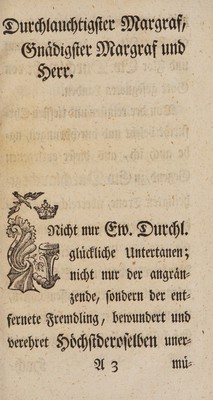 Durchlauchtigster Margraf,
Gnädigster Margraf und
Herr.
Nicht nur Ew. Durchl.
glückliche Untertanen;
nicht nur der angrän-
zende, sondern der ent-
fernete Fremdling, bewundert und
verehret Höchstderoselben uner-
A 3 mü-